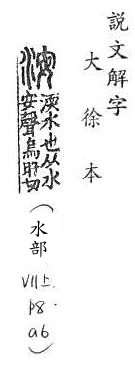 説文解字
大徐本
洝
渜水也从水
安聲烏旰切
(水部 VII上. p8 a6)